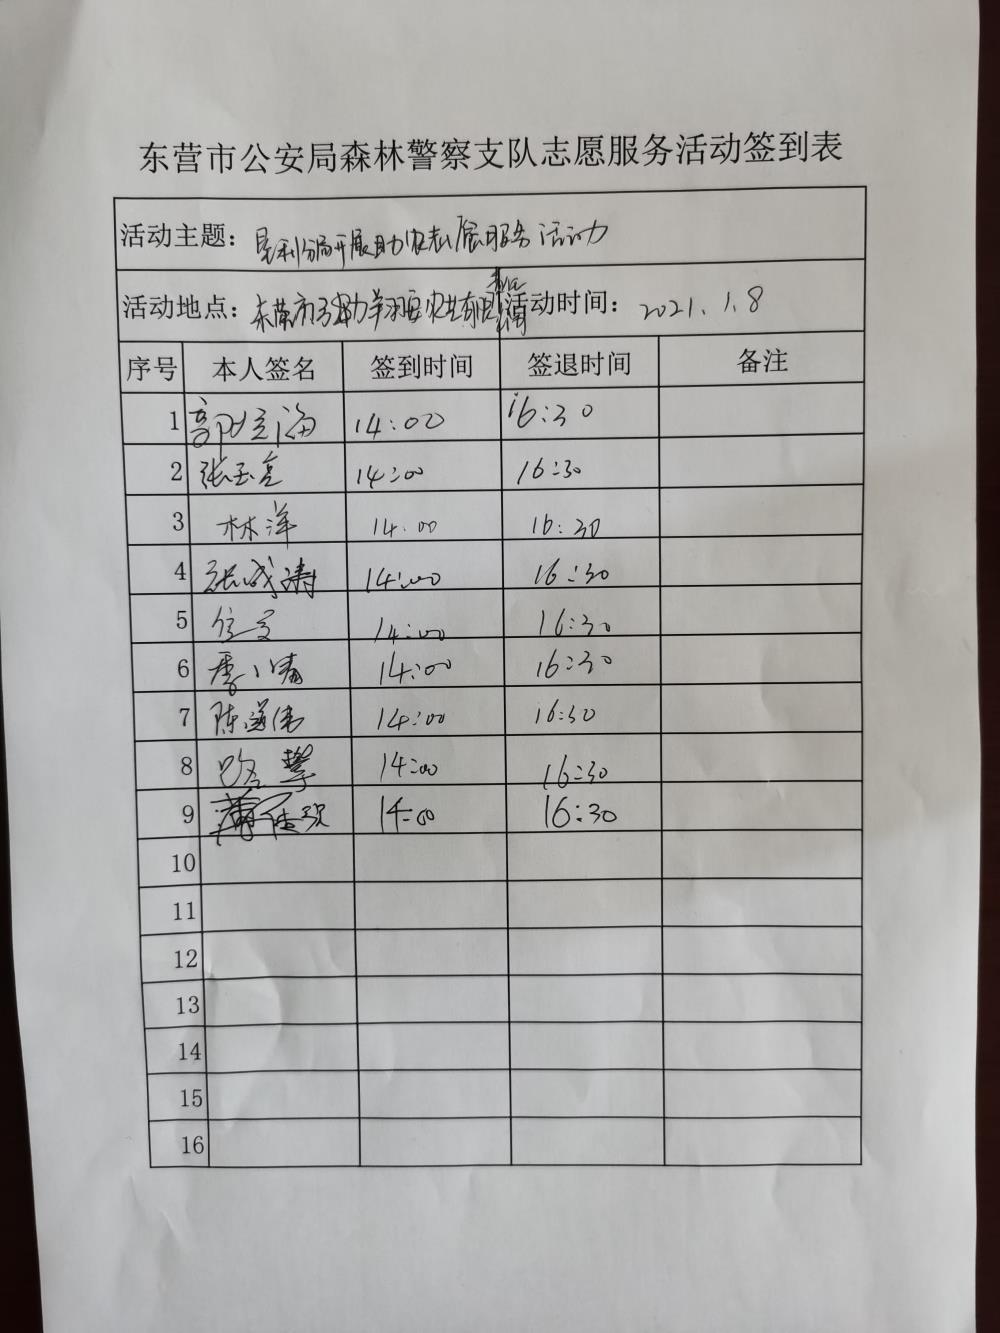 东营市公安局森林警察支队志愿服务活动签到表
活动主题：垦利分局开展助农志愿服务活动
活动地点：东营市 农业有限 活动时间：2021.1.8
序号 本人签名 签到时间 签退时间 备注
1 郭 海 14:00 16:30
2 张玉亮 14:00 16:30
3 林洋 14:00 16:30
4 张成涛 14:00 16:30
5 14:00 16:30
6 季小青 14:00 16:30
7 陈道伟 14:00 16:30
8 路 14:00 16:30
9 14:00 16:30
10
11
12
13
14
15
16